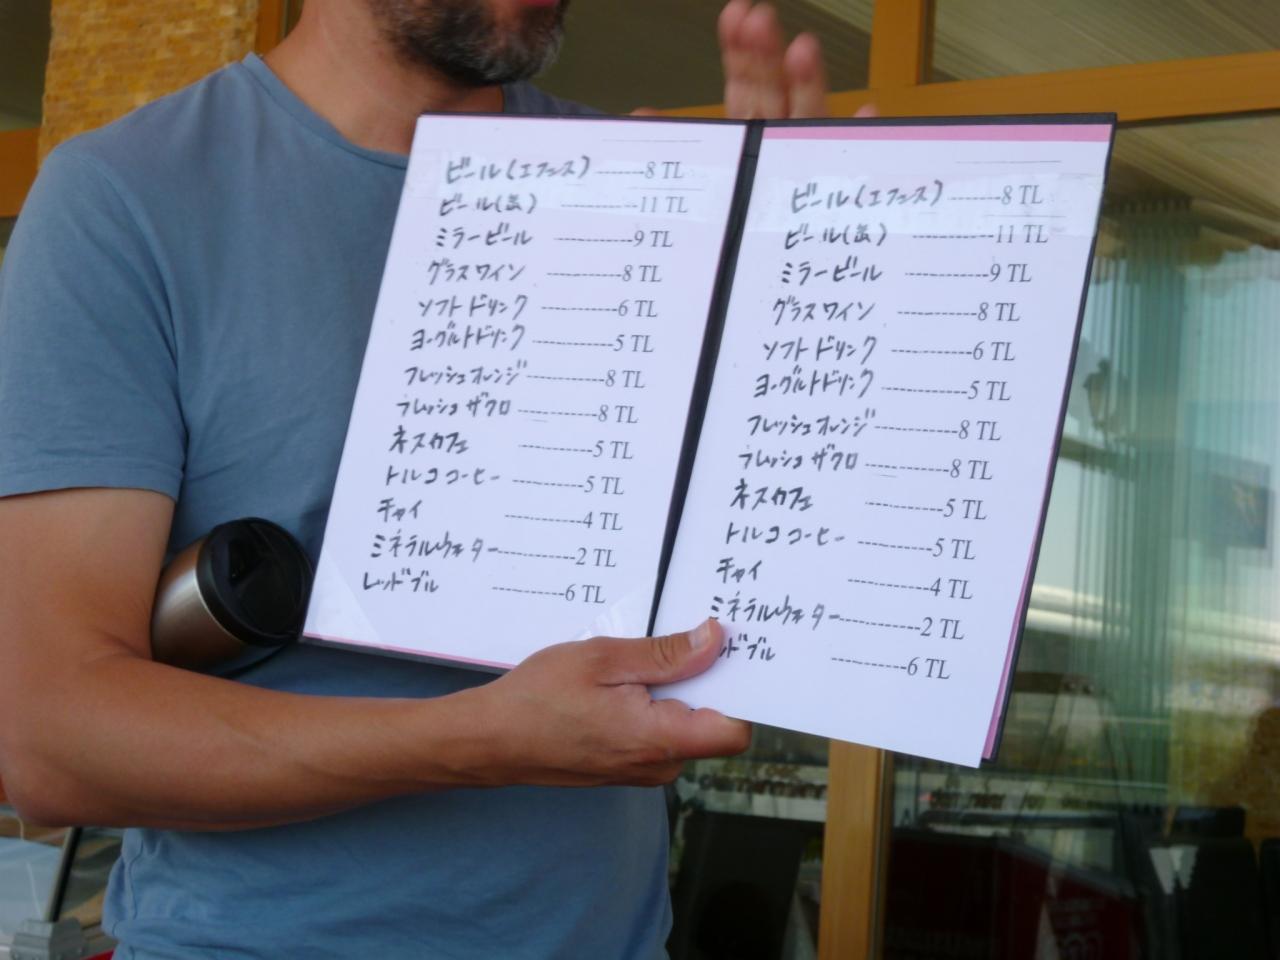 ビール(エフェス)-------8 TL
ビール(缶) -----------11 TL
ミラービール -----------9 TL
グラスワイン ----------8 TL
ソフトドリンク ----------6 TL
ヨーグルトドリンク -----------5 TL
フレッシュオレンジ-----------8 TL
フレッシュザクロ-----------8 TL
ネスカフェ ----------5 TL
トルココーヒー ----------5 TL
チャイ -----------4 TL
ミネラルウォーター-----------2 TL
レッドブル ----------6 TL
ビール(エフェス)-------8 TL
ビール(缶) -----------11 TL
ミラービール -----------9 TL
グラスワイン ----------8 TL
ソフトドリンク ----------6 TL
ヨーグルトドリンク -----------5 TL
フレッシュオレンジ-----------8 TL
フレッシュザクロ-----------8 TL
ネスカフェ ----------5 TL
トルココーヒー ----------5 TL
チャイ -----------4 TL
ミネラルウォーター-----------2 TL
ッドブル ----------6 TL